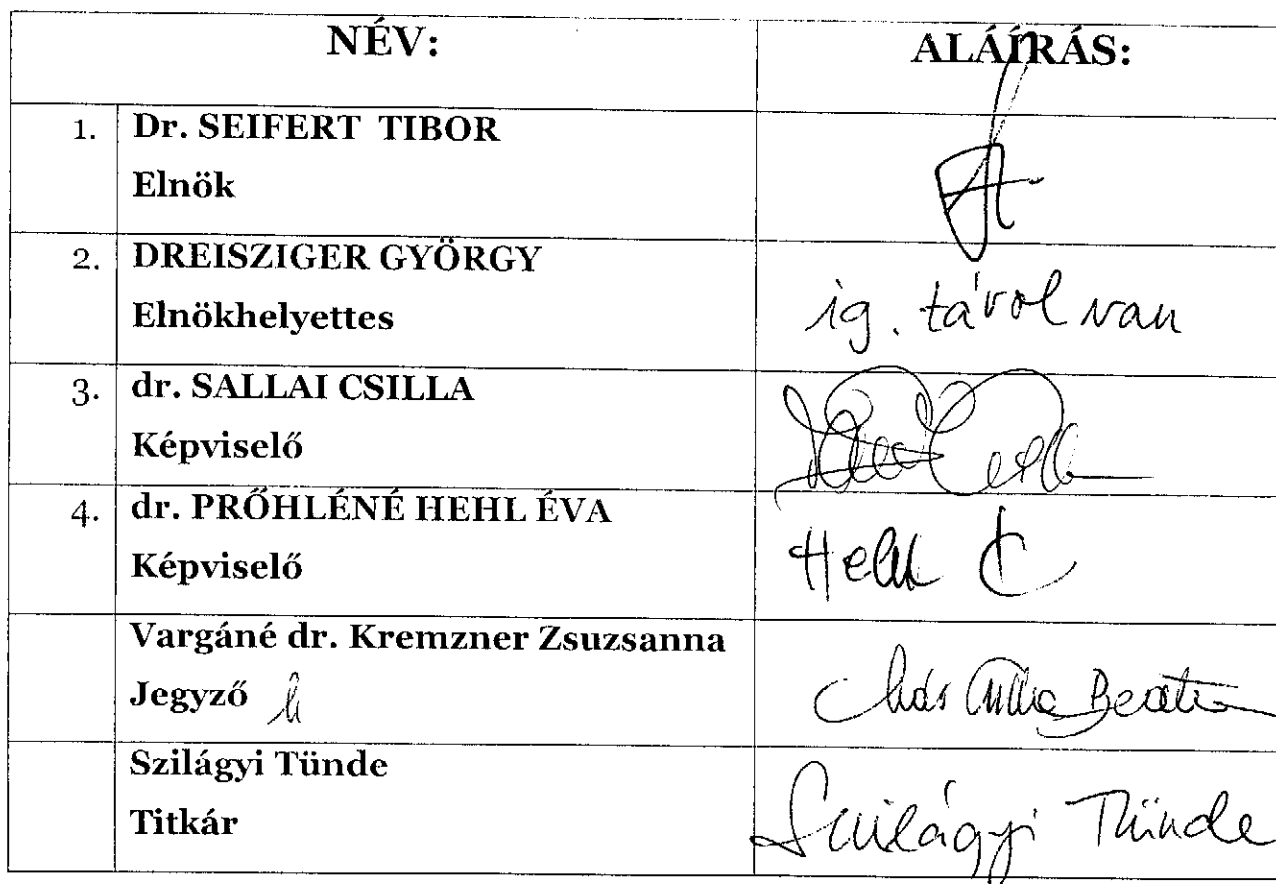 NÉV: ALÁÍRÁS:
1. Dr. SEIFERT TIBOR
Elnök
2. DREISZIGER GYÖRGY
Elnökhelyettes ig. távol van
3. dr. SALLAI CSILLA
Képviselő
4. dr. PRŐHLÉNÉ HEHL ÉVA
Képviselő Hehl É
Vargáné dr. Kremzner Zsuzsanna
Jegyző h
Szilágyi Tünde
Titkár Szilágyi Tünde